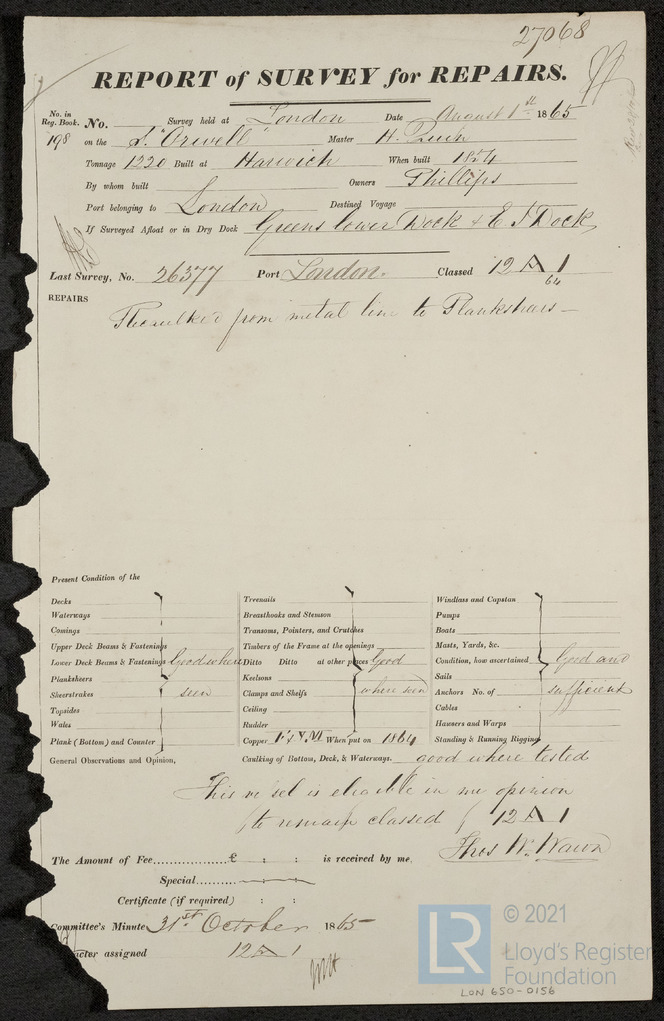 27068
REPORT of SURVEY for REPAIRS.
No. in Reg. Book. No. Survey held at London Date August 1st 1865
198 on the S. "Orwell" Master H.
Tonnage 1220 Built at Harwich When built 1854
By whom built Owners Phillips
Port belonging to London Destined Voyage
If Surveyed Afloat or in Dry Dock Greens lower Dock & E I Dock
Last Survey, No. 26377 Port London. Classed 12 A 1
64
REPAIRS
Recaulked from metal line to Plansheers
Present Condition of the
Decks Treenails Windlass and Capstan
Waterways Breasthooks and Stemson Pumps
Comings Transoms, Pointers, and Crutches Boats
Upper Deck Beams & Fastenings Timbers of the Frame at the openings Masts, Yards, &c.
Lower Deck Beams & Fastenings Good where Ditto Ditto at other places Good Condition, how ascertained Good and
Planksheers Keelsons Sails
Sheerstrakes seen Clamps and Shelfs where seen Anchors No. of sufficient
Topsides Ceiling Cables
Wales Rudder Hawsers and Warps
Plank (Bottom) and Counter Copper F & Y.M When put on 1864 Standing & Running Rigging
General Observations and Opinion, Caulking of Bottom, Deck, & Waterways. good where tested
This vessel is eligible in my opinion
to remain classed 12 A 1
Thos W. Wawn
The Amount of Fee............... £ : : is received by me,
Special.........
Certificate (if required) : :
Committee's Minute 31st October 1865
acter assigned 12 A 1
© 2021
LR Lloyd's Register
Foundation
LON 650-0156